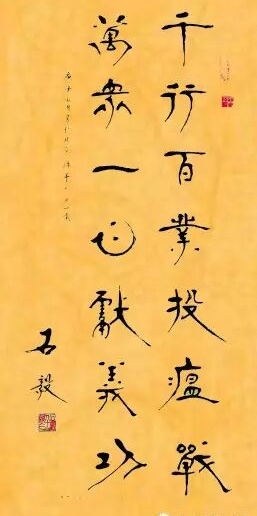 千行百業投瘟戰
萬眾一心獻義功
石毅